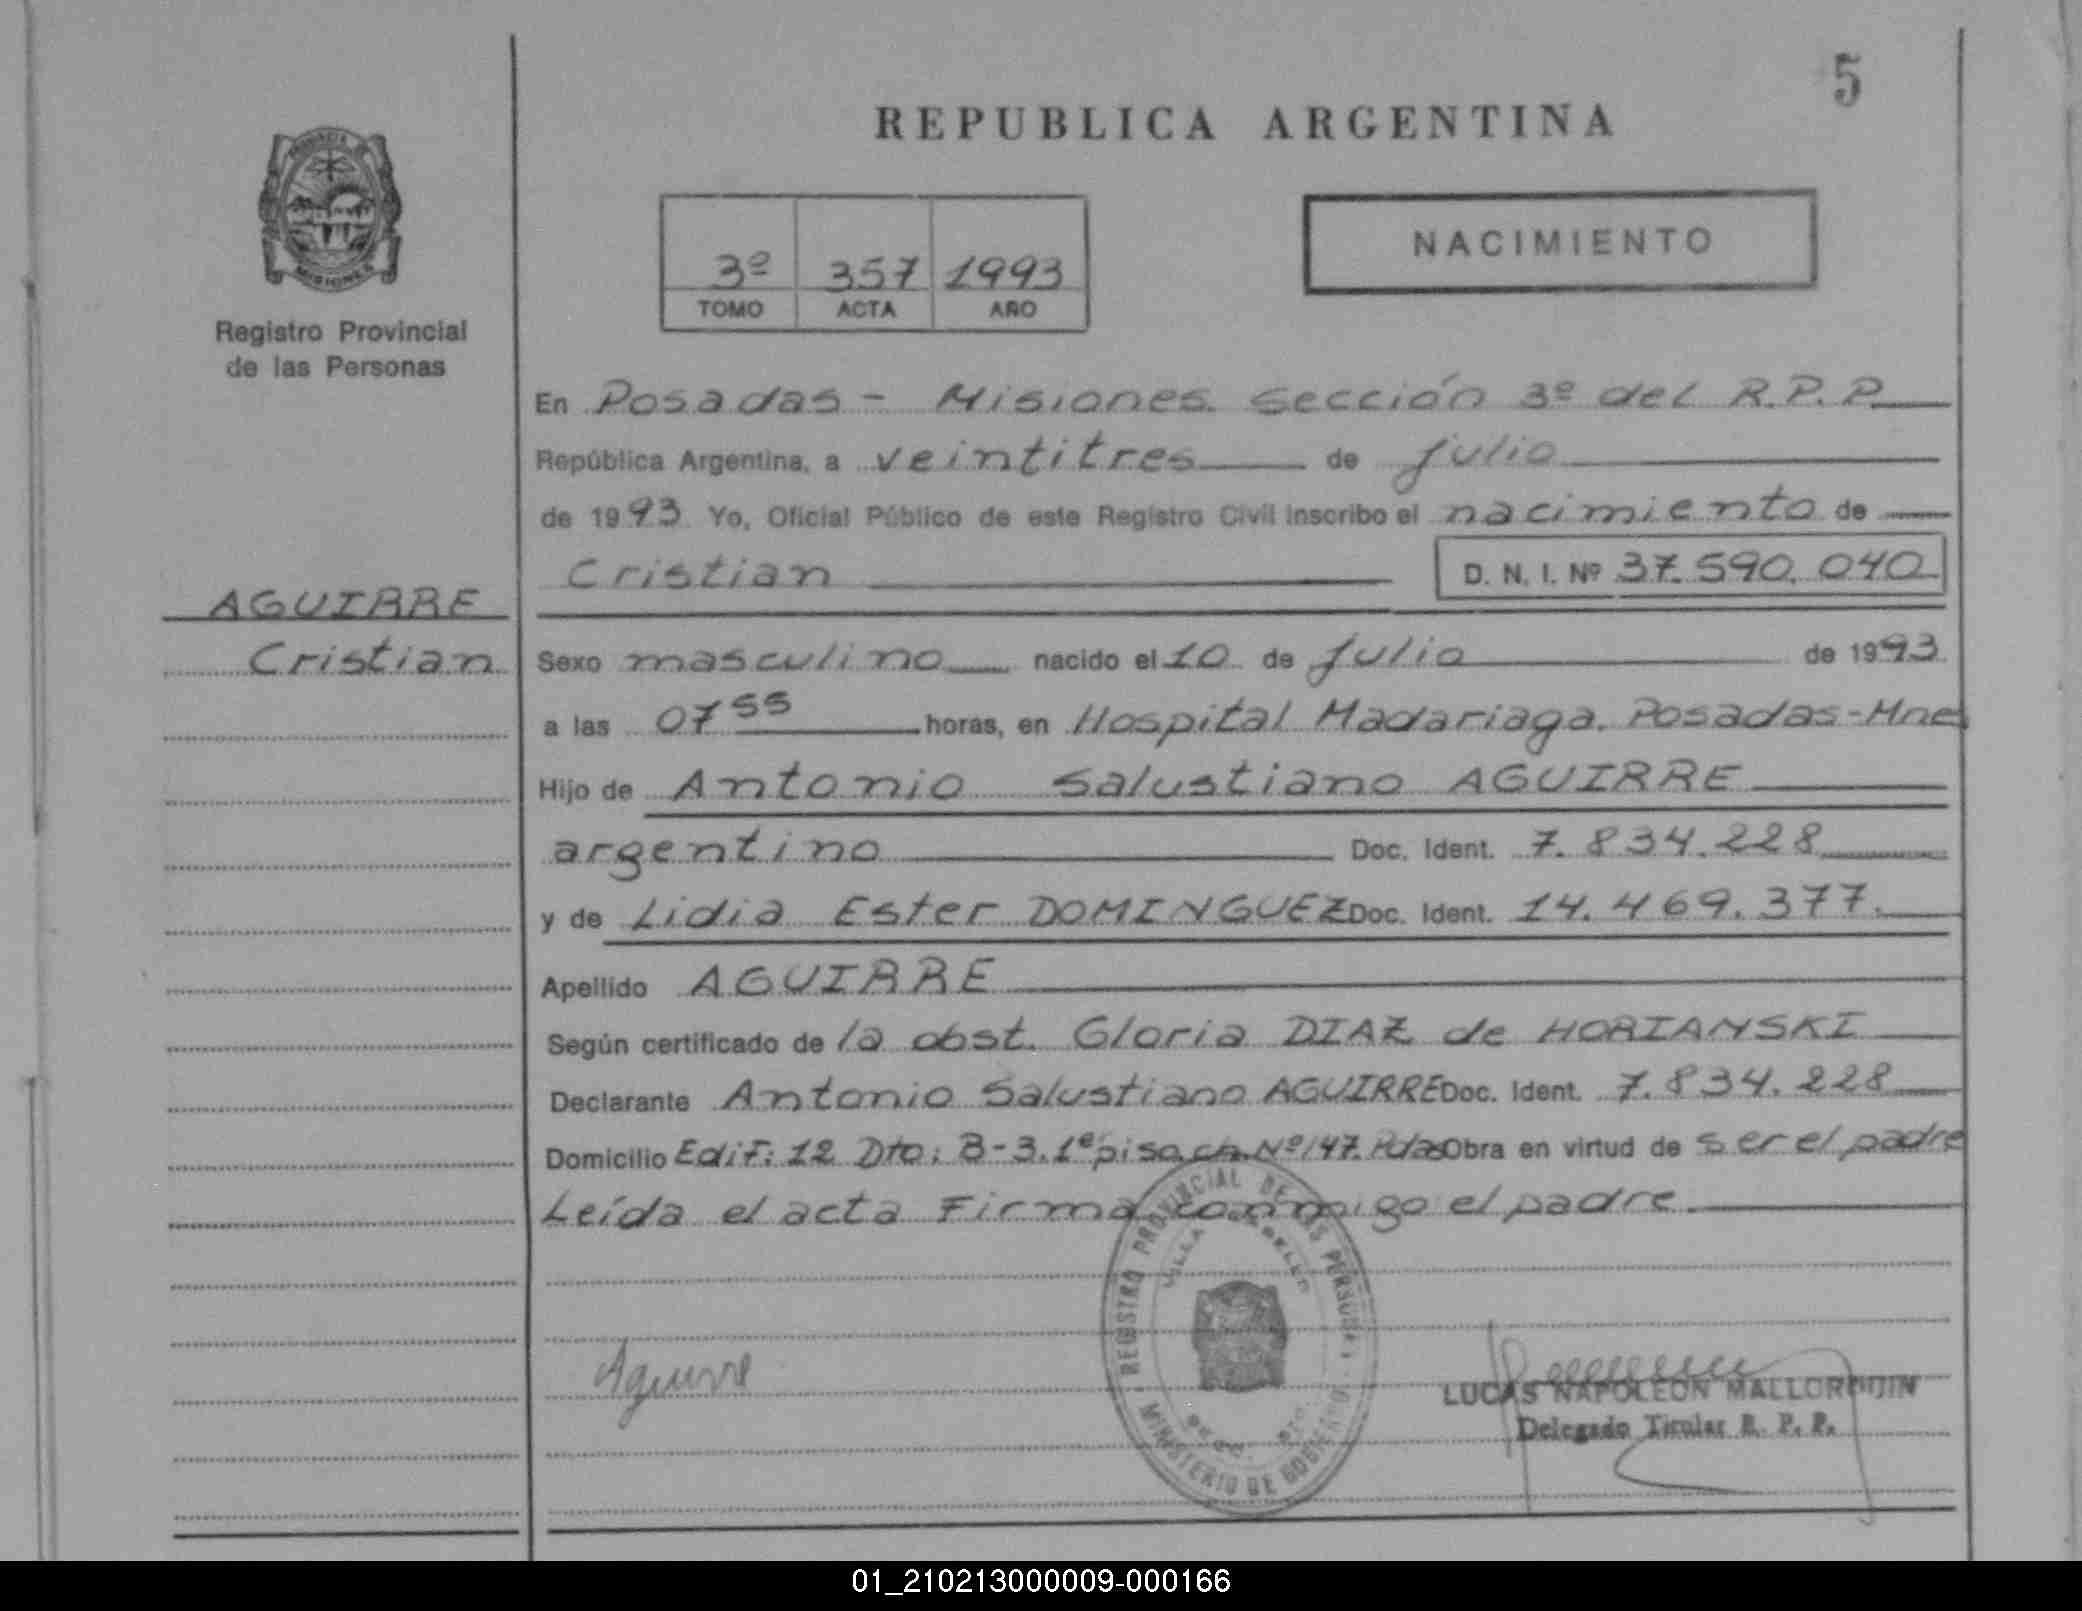 5
REPUBLICA ARGENTINA
PROVINCIA DE
MISIONES
Registro Provincial
de las Personas
3º 357 1993
TOMO ACTA AÑO
NACIMIENTO
En Posadas - Misiones. Sección 3º del R.P.P.
República Argentina, a veintitres de julio
de 1993 Yo, Oficial Público de este Registro Civil inscribo el nacimiento de
Cristian D. N. I. Nº 37.590.040
AGUIRRE
Cristian
Sexo masculino nacido el 10 de julio de 1993
a las 07 55 horas, en Hospital Madariaga. Posadas-Mnes
Hijo de Antonio Salustiano AGUIRRE
argentino Doc. Ident. 7.834.228
y de Lidia Ester DOMINGUEZ Doc. Ident. 14.469.377.
Apellido AGUIRRE
Según certificado de la obst. Gloria DIAZ de HORIANSKI
Declarante Antonio Salustiano AGUIRRE Doc. Ident. 7.834.228
Domicilio Edif: 12 Dto: B-3. 1º piso. ch. Nº 147. Pdas Obra en virtud de ser el padre
Leída el acta Firma conmigo el padre
REGISTRO PROVINCIAL DE LAS PERSONAS
MINISTERIO DE GOBIERNO
Aguirre
LUCAS NAPOLEON MALLORQUIN
Delegado Titular R. P. P.
01_210213000009-000166